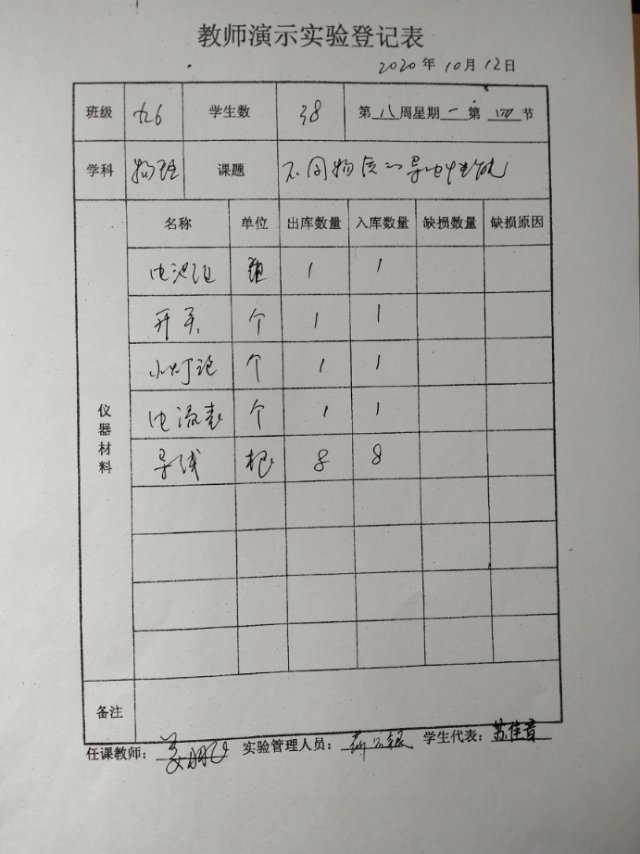 教师演示实验登记表
2020年10月12日
班级 九6 学生数 38 第八周星期一第四节
学科 物理 课题 不同物质的导电性能
仪器材料 名称 单位 出库数量 入库数量 缺损数量 缺损原因
电池组 组 1 1
开关 个 1 1
小灯泡 个 1 1
电流表 个 1 1
导线 根 8 8
备注
任课教师： 实验管理人员： 学生代表：苏佳音